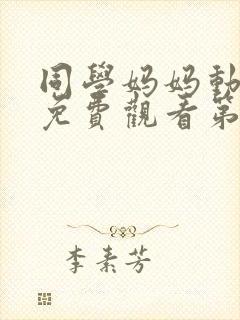 同學妈妈動
免費觀看第
李素芳